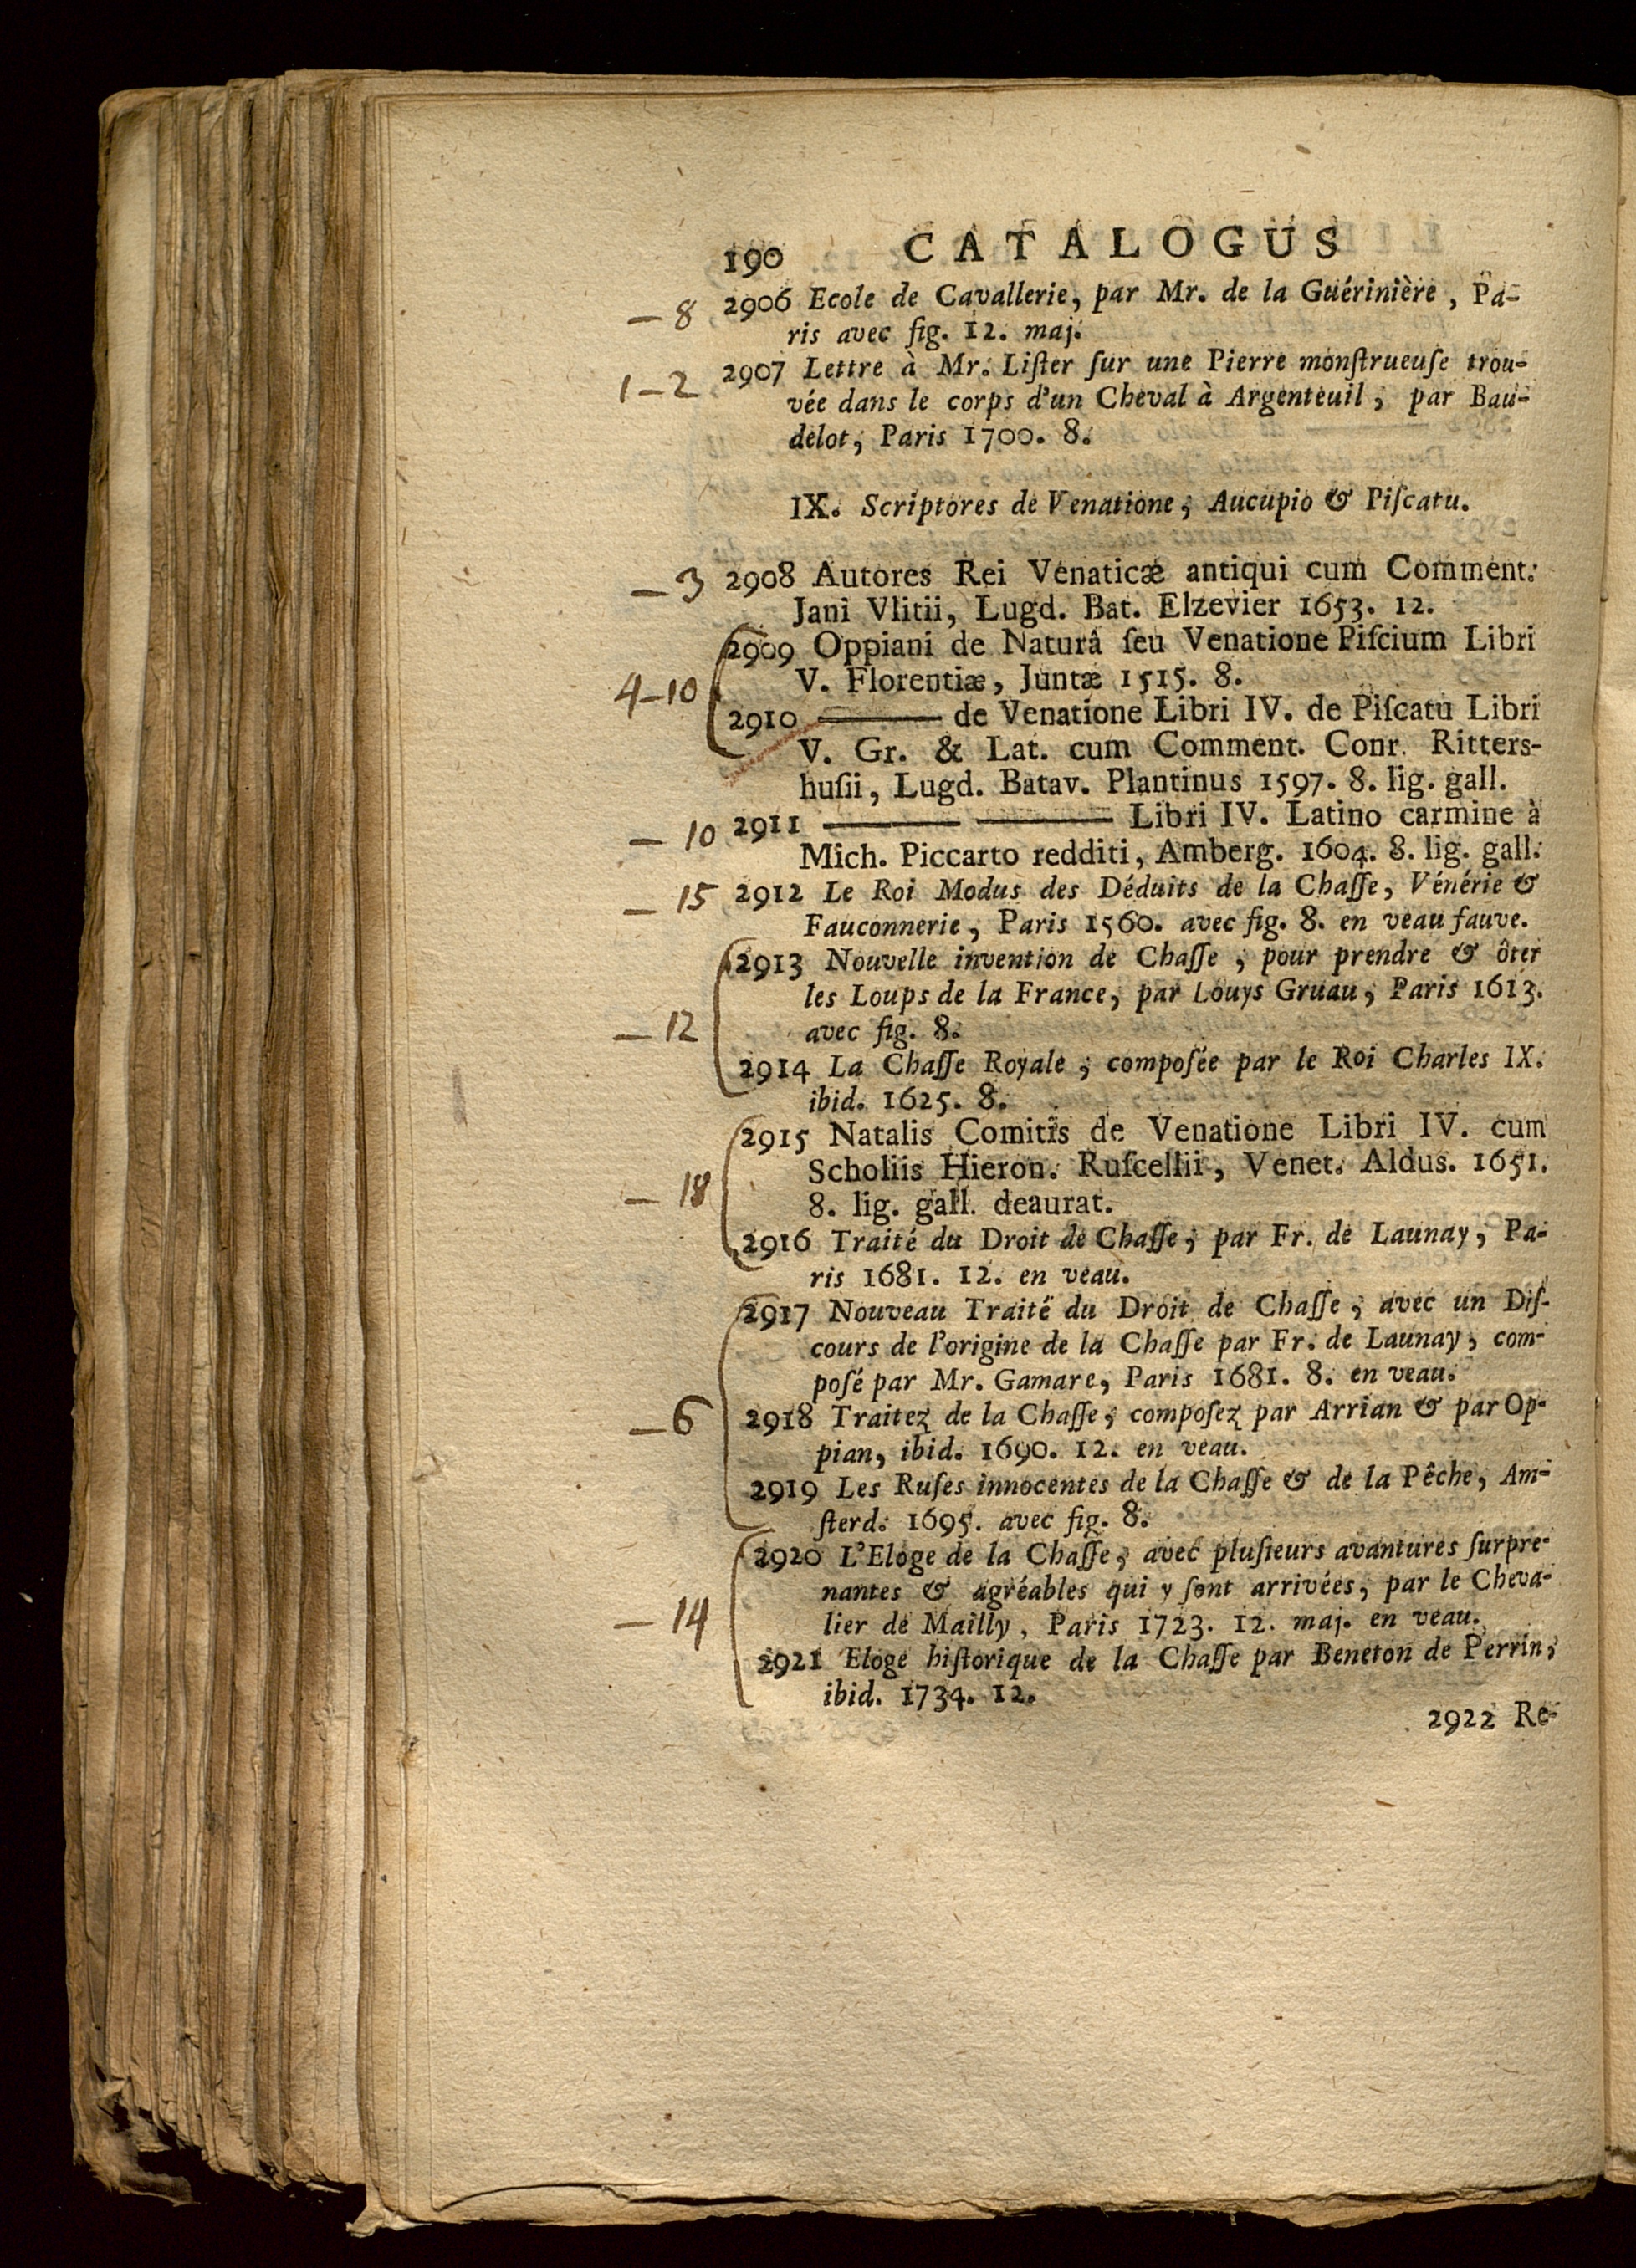 190 CATALOGUS
— 8 2906 Ecole de Cavallerie, par Mr. de la Guérinière, Pa-
ris avec fig. 12. maj.
1 — 2 2907 Lettre à Mr. Liſter ſur une Pierre monſtrueuſe trou-
vée dans le corps d'un Cheval à Argenteuil, par Bau-
delot, Paris 1700. 8.
IX. Scriptores de Venatione, Aucupio & Piſcatu.
— 3 2908 Autores Rei Venaticæ antiqui cum Comment.
Jani Vlitii, Lugd. Bat. Elzevier 1653. 12.
2909 Oppiani de Naturâ ſeu Venatione Piſcium Libri
4 — 10 V. Florentiæ, Juntæ 1515. 8.
2910 ——— de Venatione Libri IV. de Piſcatu Libri
V. Gr. & Lat. cum Comment. Conr. Ritters-
huſii, Lugd. Batav. Plantinus 1597. 8. lig. gall.
— 10 2911 ——— ——— Libri IV. Latino carmine à
Mich. Piccarto redditi, Amberg. 1604. 8. lig. gall.
— 15 2912 Le Roi Modus des Déduits de la Chaſſe, Vénérie &
Fauconnerie, Paris 1560. avec fig. 8. en veau fauve.
2913 Nouvelle invention de Chaſſe, pour prendre & ôter
les Loups de la France, par Louys Gruau, Paris 1613.
— 12 avec fig. 8.
2914 La Chaſſe Royale, compoſée par le Roi Charles IX.
ibid. 1625. 8.
2915 Natalis Comitis de Venatione Libri IV. cum
Scholiis Hieron. Ruſcellii, Venet. Aldus. 1651.
— 18 8. lig. gall. deaurat.
2916 Traité du Droit de Chaſſe, par Fr. de Launay, Pa-
ris 1681. 12. en veau.
2917 Nouveau Traité du Droit de Chaſſe, avec un Diſ-
cours de l'origine de la Chaſſe par Fr. de Launay, com-
poſé par Mr. Gamare, Paris 1681. 8. en veau.
— 6 2918 Traitez de la Chaſſe, compoſez par Arrian & par Op-
pian, ibid. 1690. 12. en veau.
2919 Les Ruſes innocentes de la Chaſſe & de la Pêche, Am-
ſterd. 1695. avec fig. 8.
2920 L'Eloge de la Chaſſe, avec pluſieurs avantures ſurpre-
nantes & agréables qui y ſont arrivées, par le Cheva-
— 14 lier de Mailly, Paris 1723. 12. maj. en veau.
2921 Eloge hiſtorique de la Chaſſe par Beneton de Perrin,
ibid. 1734. 12.
2922 Re-